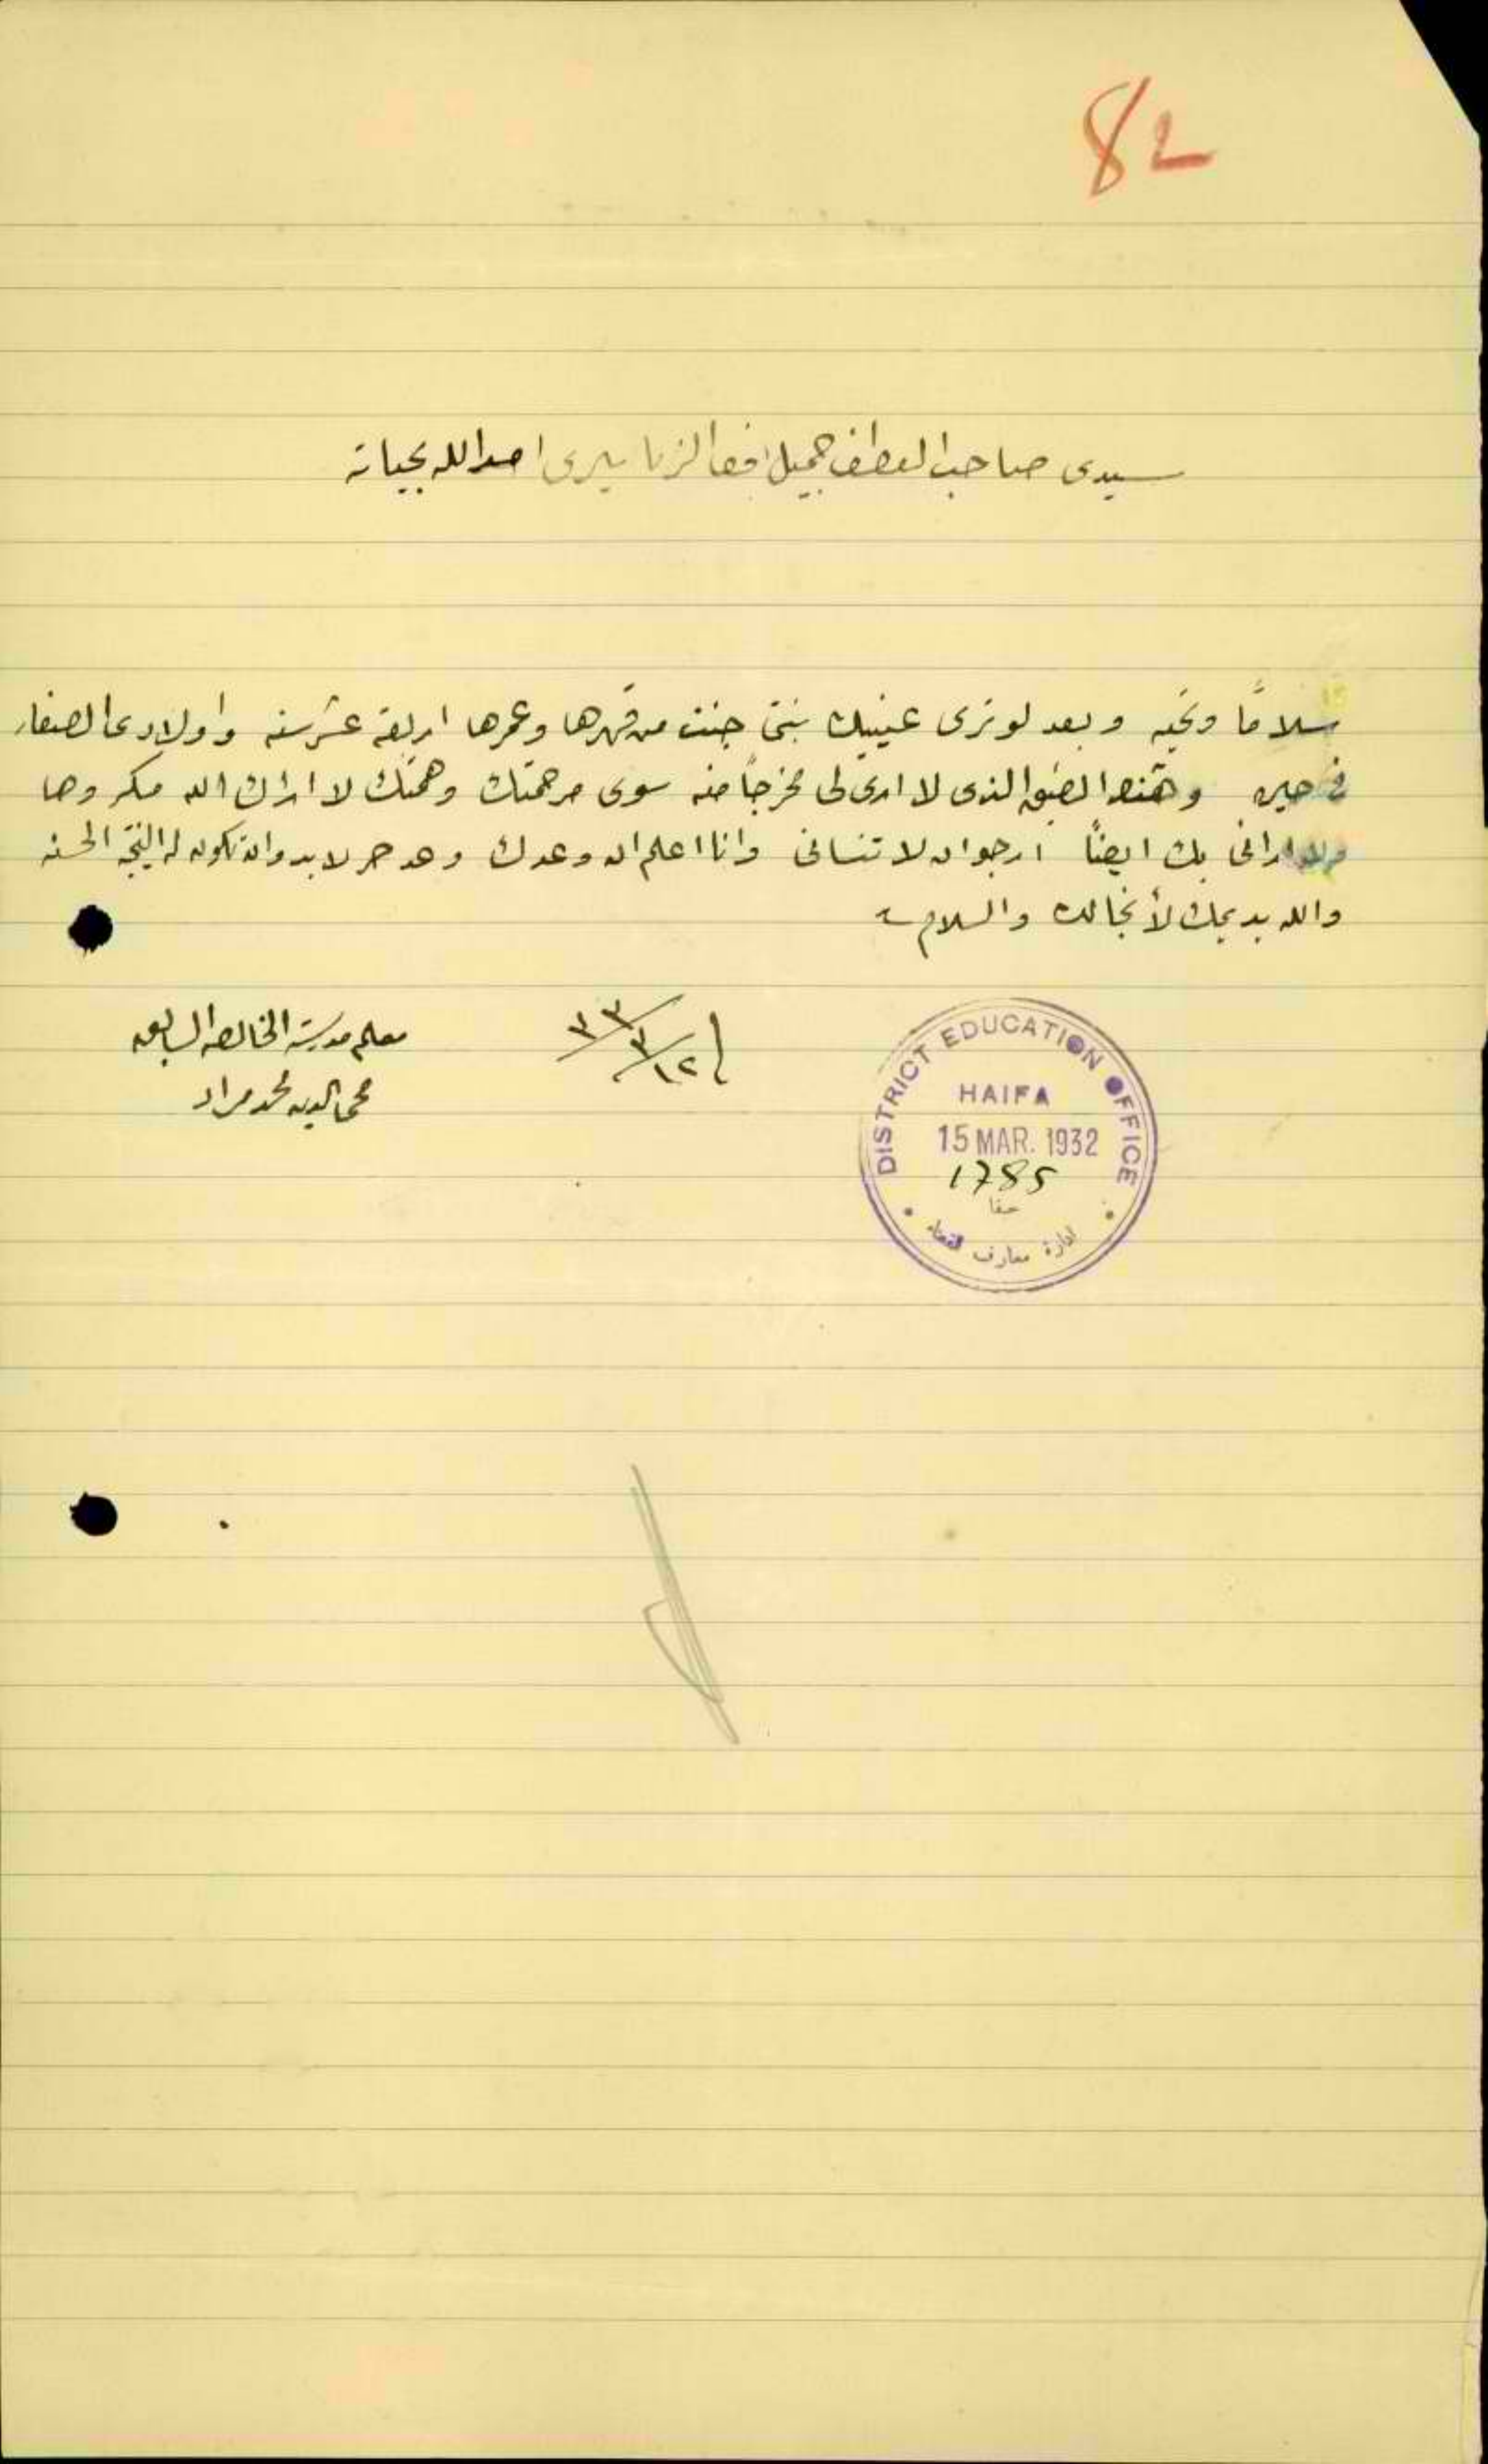 82
سيدى صاحب العطف جميل افندى الزنا بيرى امد الله بحياته
سلامًا وتحيه وبعد لو ترى عينيك بنتى جنت من قهرها وعمرها اربعة عشر سنه واولادى الصغار
فى حيره وهذا الضيق الذى لا ارى لى مخرجاً منه سوى مرحمتك وهمتك لا اراك الله مكروها
ولا ارانى بك ايضاً ارجو ان لا تنسانى وانا اعلم ان وعدك وعد حر لا بد وان تكون له النتيجة الحسنه
والله يديمك لأنجالك والسلام
١٢/٣/٣٢
معلم مدرسة الخالصه السابق
محى الدين محمد مراد
DISTRICT EDUCATION OFFICE
HAIFA
15 MAR. 1932
1785
حيفا
ادارة معارف القضاء